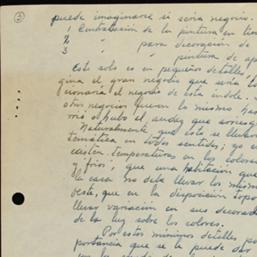 3
puede imaginarse si sería negocio.
1 Contratación de la pintura en tien
2 " para decoración de
3 " pintura de ap
Este solo es en pequeños detalles,
gina el gran negocio que sería la
cionaría el negocio de esta índole.
otro negocio fueron lo mismo has
mo el hubo el, andes que arriesg
Naturalmente que esto se llevar
temática en todos sentidos; yo en
existen temperaturas en los colores
y "fríos", que una habitación que
la casa no debe llevar los mismo
oeste, que en la disposición topo
llevar variación en sus decorado
de la luz sobre los colores.
Por estos mínimos detalles po
portancia que se le puede dar